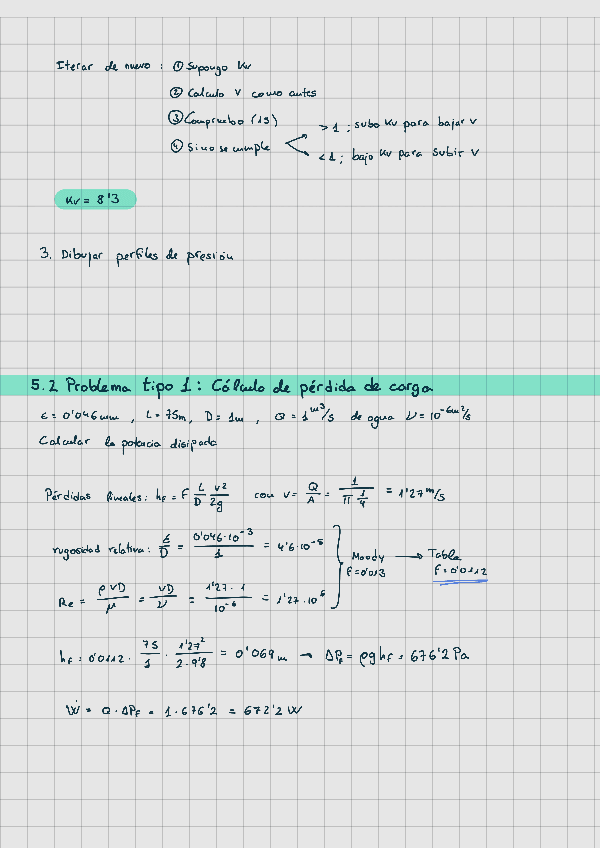 Iterar de nuevo : ① Supongo Kv
② Calculo V como antes
③ Compruebo (15)
④ Si no se cumple
> 1 ; subo Kv para bajar V
< 1 ; bajo Kv para subir V
Kv = 8'3
3. Dibujar perfiles de presión
5.2 Problema tipo 1 : Cálculo de pérdida de carga
ε = 0'046 mm , L = 75m , D = 1m , Q = 1 m³/s de agua ν = 10⁻⁶ m²/s
Calcular la potencia disipada
Pérdidas lineales : hf = f L/D v²/2g con v = Q/A = 1/(π 1/4) = 1'27 m/s
rugosidad relativa : ε/D = 0'046·10⁻³/1 = 4'6·10⁻⁵
Moody → Tabla
f = 0'013 f = 0'0112
Re = ρVD/μ = VD/ν = 1'27·1/10⁻⁶ = 1'27·10⁶
hf = 0'0112 · 75/1 · 1'27²/2·9'8 = 0'069 m → ΔPf = ρghf = 676'2 Pa
Ẇ = Q · ΔPf = 1·676'2 = 672'2 W